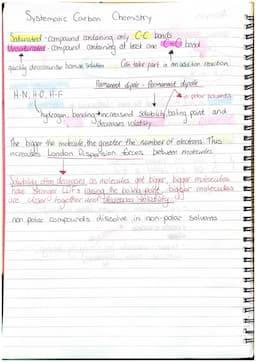 Systematic Carbon Chemistry
Saturated - compound containing only C-C bonds
Unsaturated - compound containing at least one C=C bond
quickly decolourise bromine solution
Can take part in an addition reaction.
Permanent dipole - Permanent dipole
H-N, H-O, H-F
in polar solvents
hydrogen bonding → increased solubility, boiling point and
decreases volatility
The bigger the molecule, the greater the number of electrons. Thus
increases London Dispersion forces between molecules
Solubility often decreases as molecules get bigger, bigger molecules
have stronger LDFs raising the boiling point, bigger molecules
are closer together and decreases volatility
non polar compounds dissolve in non-polar solvents